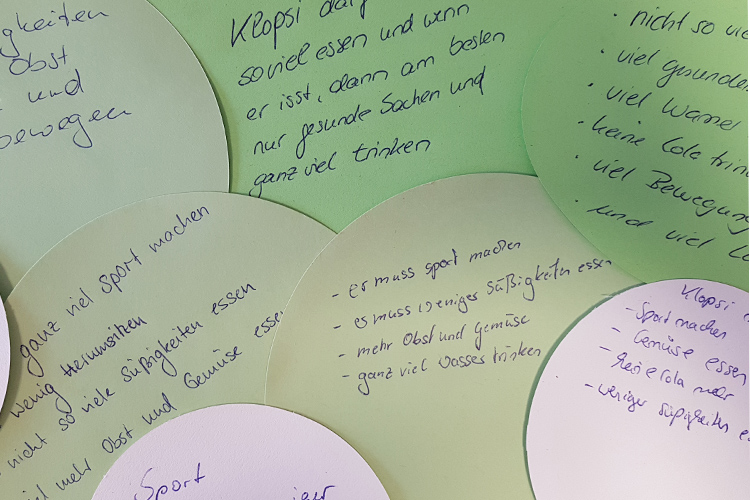 Obst
und
bewegen
Klopsi darf
soviel essen und wenn
er isst, dann am besten
nur gesunde Sachen und
ganz viel trinken
· nicht so
· viel
· viel
· keine Cola
· viel Bewegung
· und viel
ganz viel Sport machen
wenig Herumsitzen
nicht so viele Süßigkeiten essen
mehr Obst und Gemüse essen
- er muss sport machen
- es muss weniger Süßigkeiten essen
- mehr Obst und Gemüse
- ganz viel Wasser trinken
Klopsi
- Sport machen
- Gemüse essen
- keine cola mehr
- weniger süßigkeiten
Sport